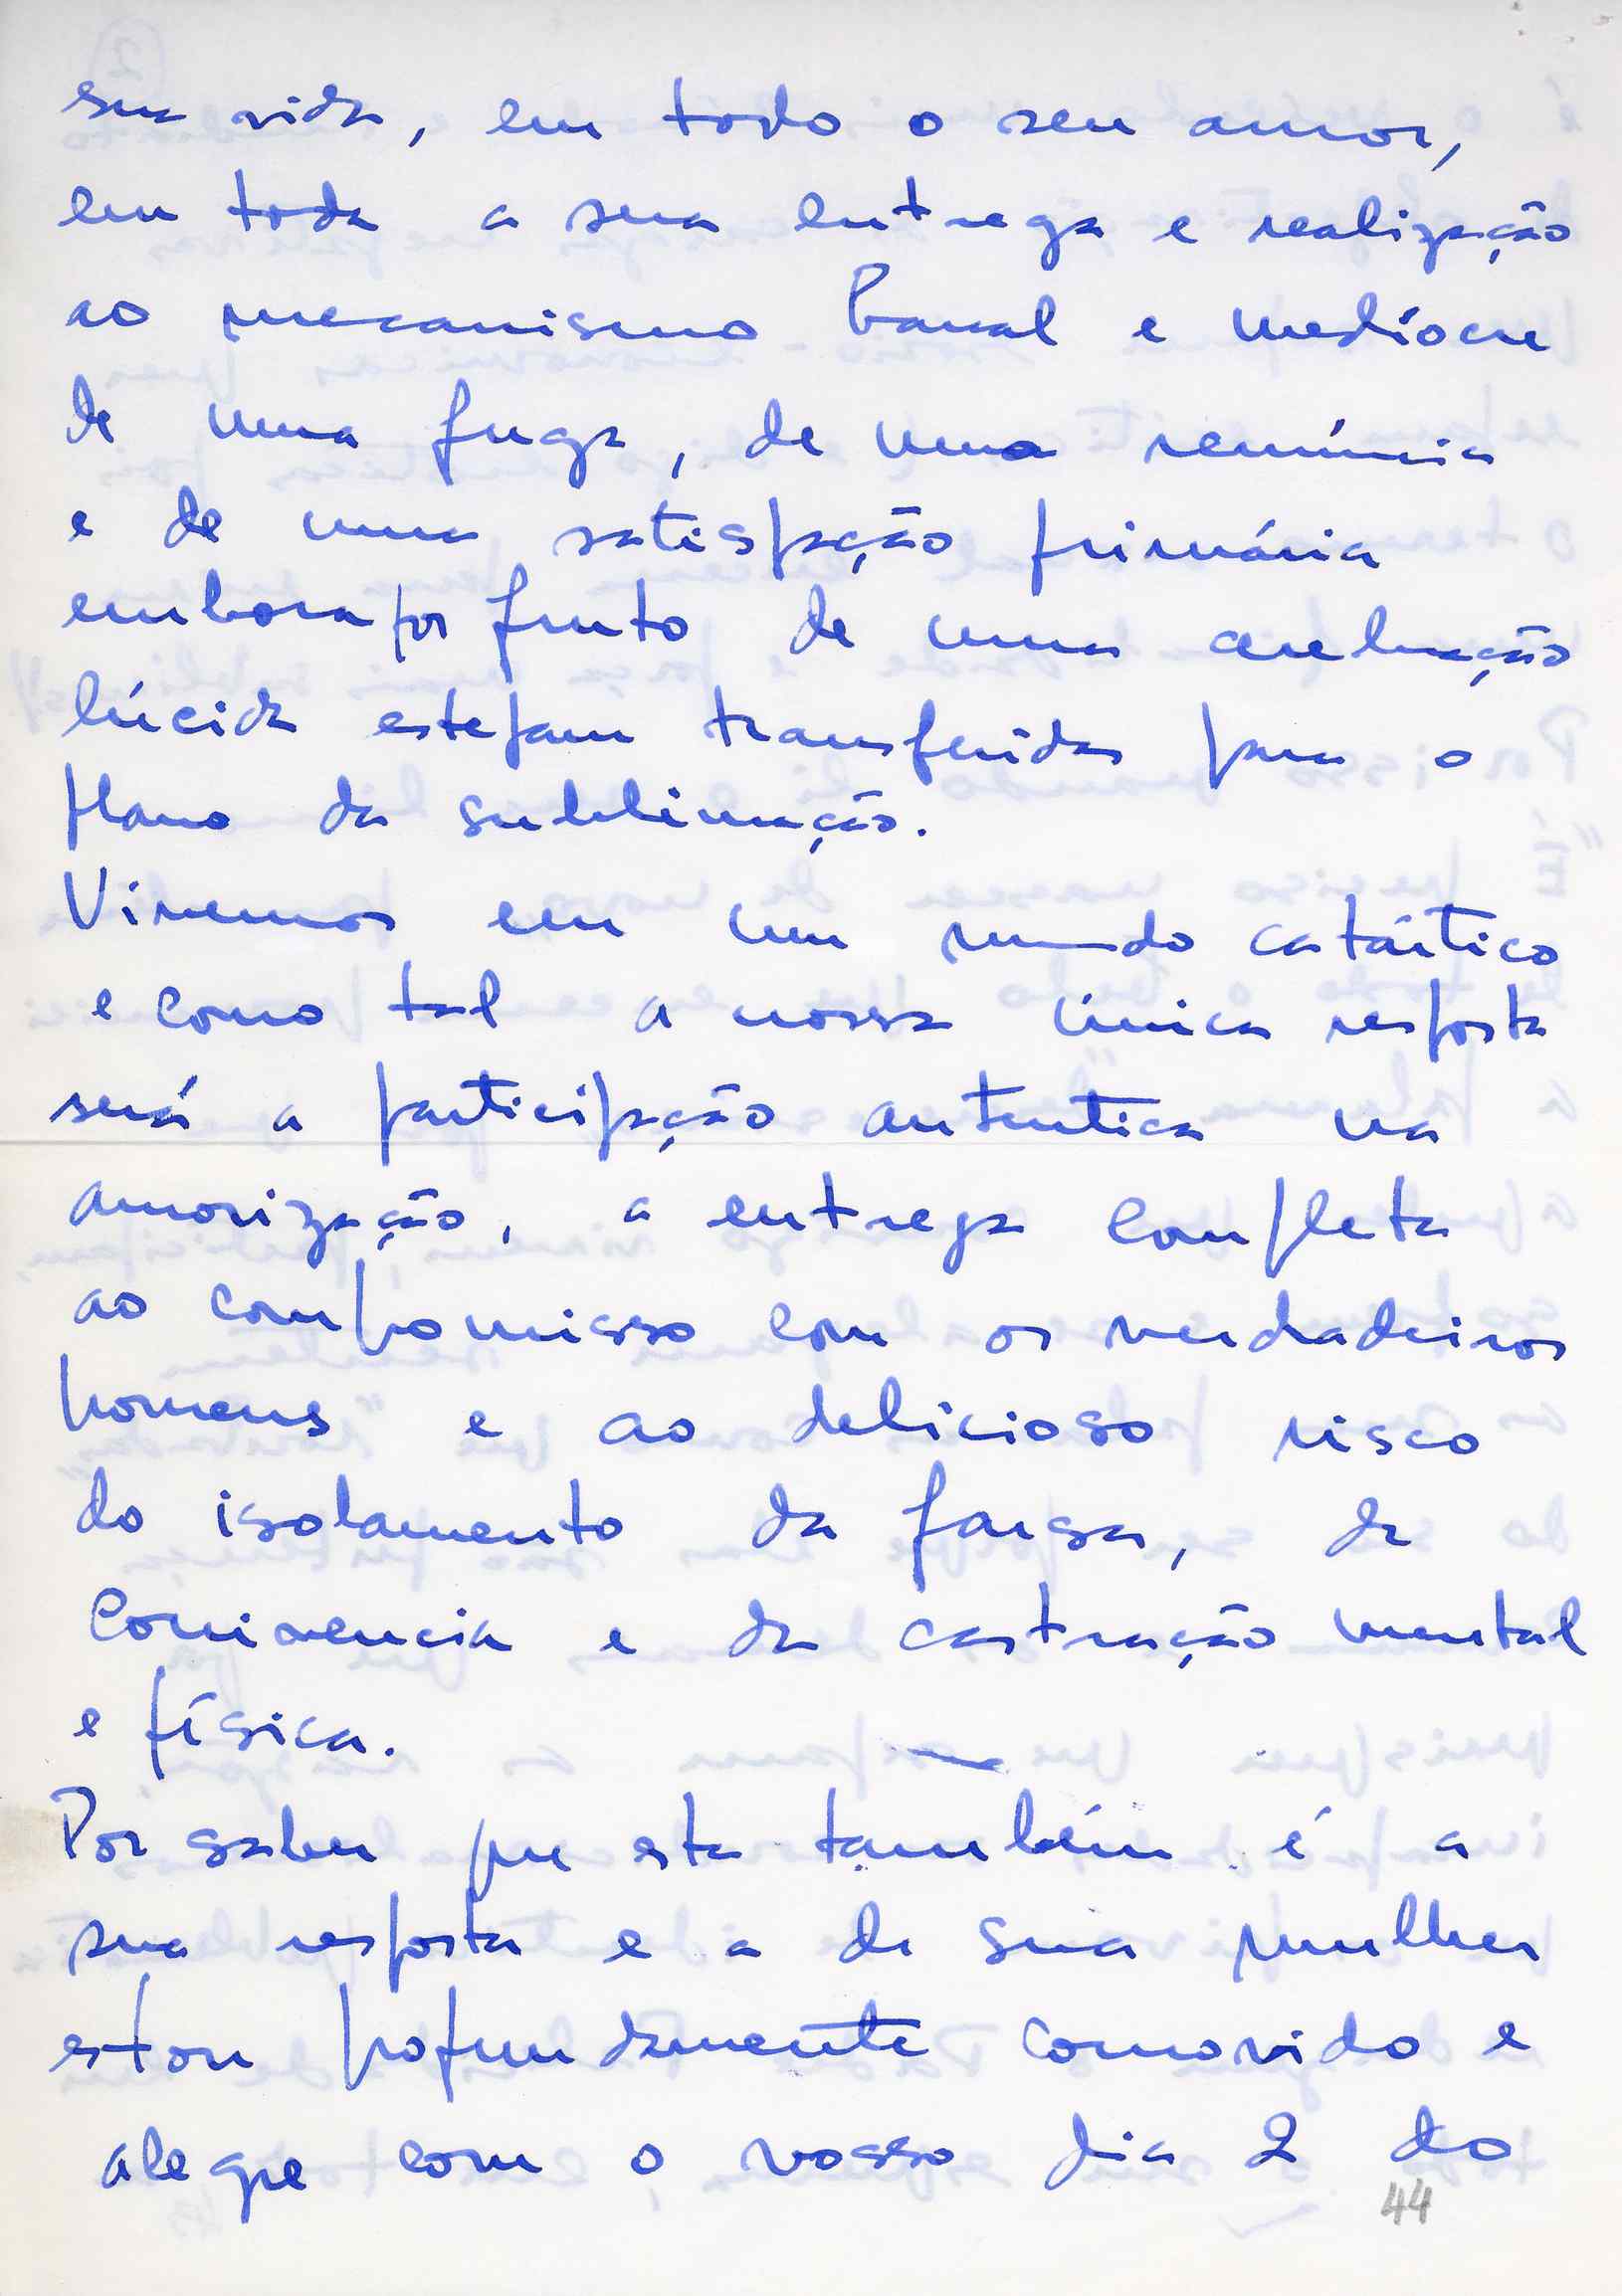 sua vida, em todo o seu amor,
em toda a sua entrega e realização
ao mecanismo banal e medíocre
de uma fuga, de uma renúncia
e de uma satisfação primária
embora por fruto de uma
lúcida estejam transferidas para o
plano da sublimação.
Vivemos em um mundo catártico
e como tal a nossa única resposta
será a participação autentica na
amorização, a entrega completa
ao compromisso com os verdadeiros
homens e ao delicioso risco
do isolamento da farsa, da
conivencia e da castração mental
e física.
Por saber que esta também é a
sua resposta e a de sua mulher
estou profundamente comovido e
alegre com o vosso dia 2 do
44